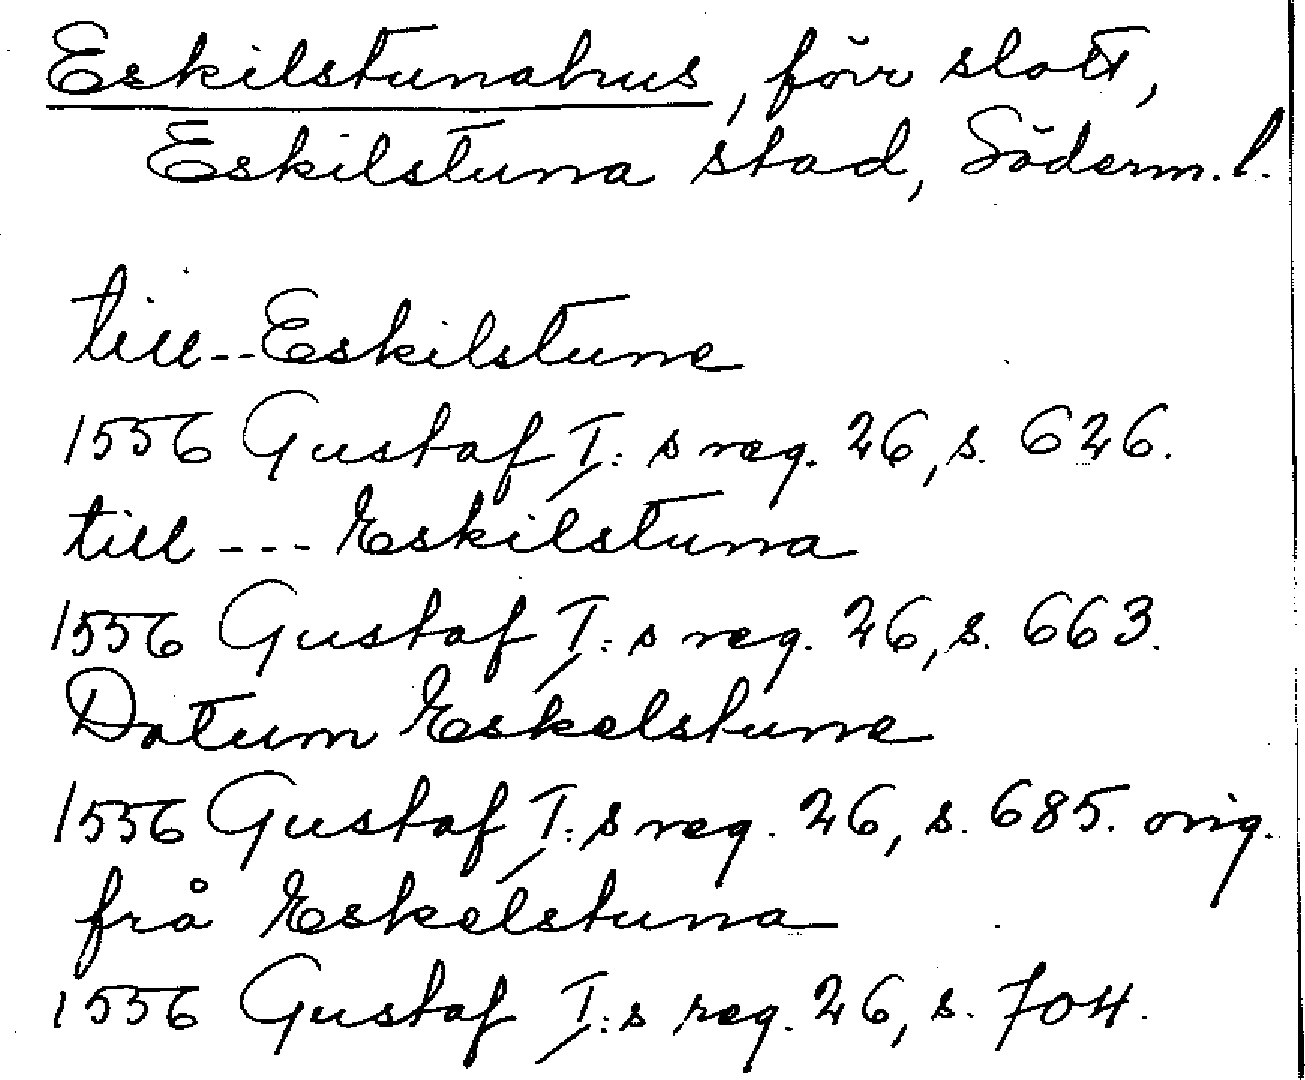 Eskilstunahus, förr slott,
Eskilstuna stad, Söderm. l.
till--Eskilstune
1556 Gustaf I:s reg. 26, s. 626.
till --- Eskilstuna
1556 Gustaf I:s reg. 26, s. 663.
Datum Eskelstune
1556 Gustaf I:s reg. 26, s. 685. orig.
frå Eskelstuna
1556 Gustaf I:s reg. 26, s. 704.